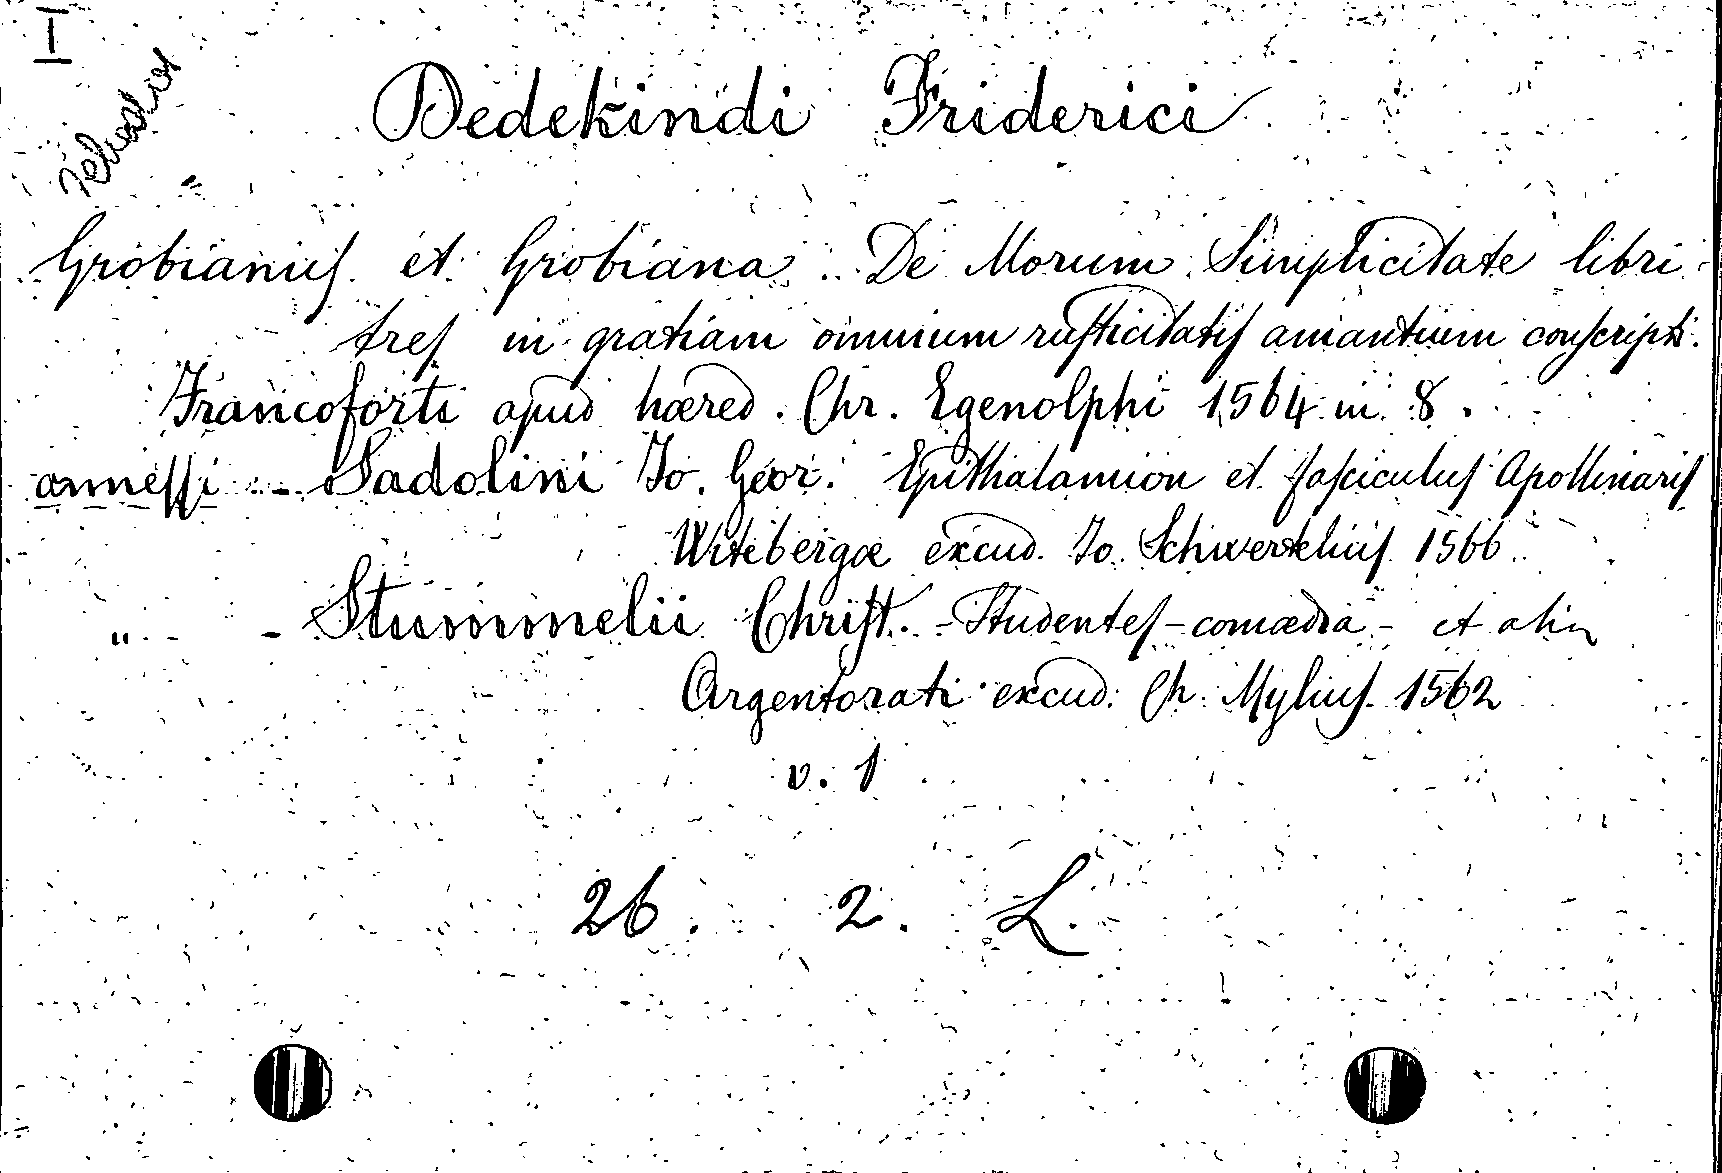 I
Dedekindi Friderici
Grobianus et Grobiana. De Morum Simplicitate libri
tres in gratiam omnium rusticitatis amantium conscripti.
Francoforti apud hæred. Chr. Egenolphi 1564 in 8.
annessi - Sadolini Jo. Geor. Epithalamion et fasciculus Apollinaris
Witebergæ excud. Jo. Schwertelius 1566.
" - Stummelii Christ. - Studentes - comædia - et alia
Argentorati excud. Ch. Mylius. 1562
v. 1
26. 2. L.